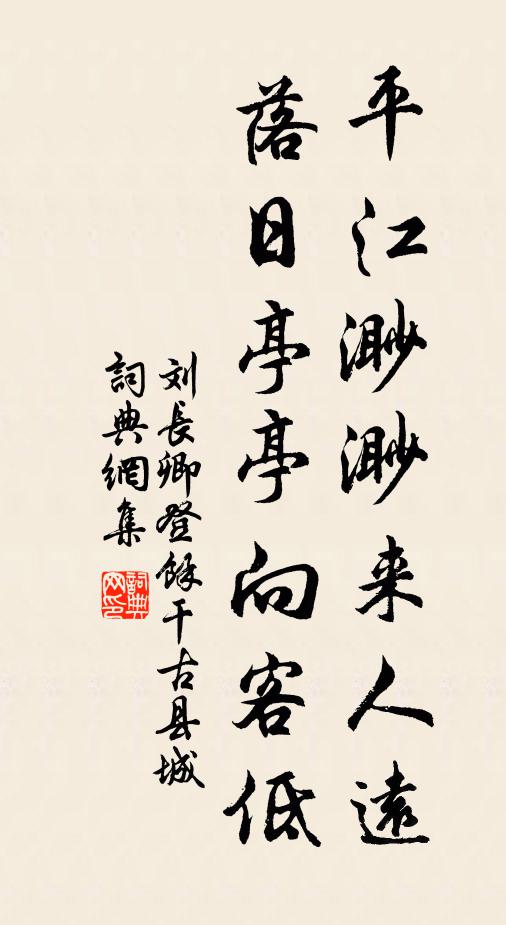 平江渺渺来人遠
落日亭亭向客低
刘長卿登餘干古县城
詞典網集
詞典网印